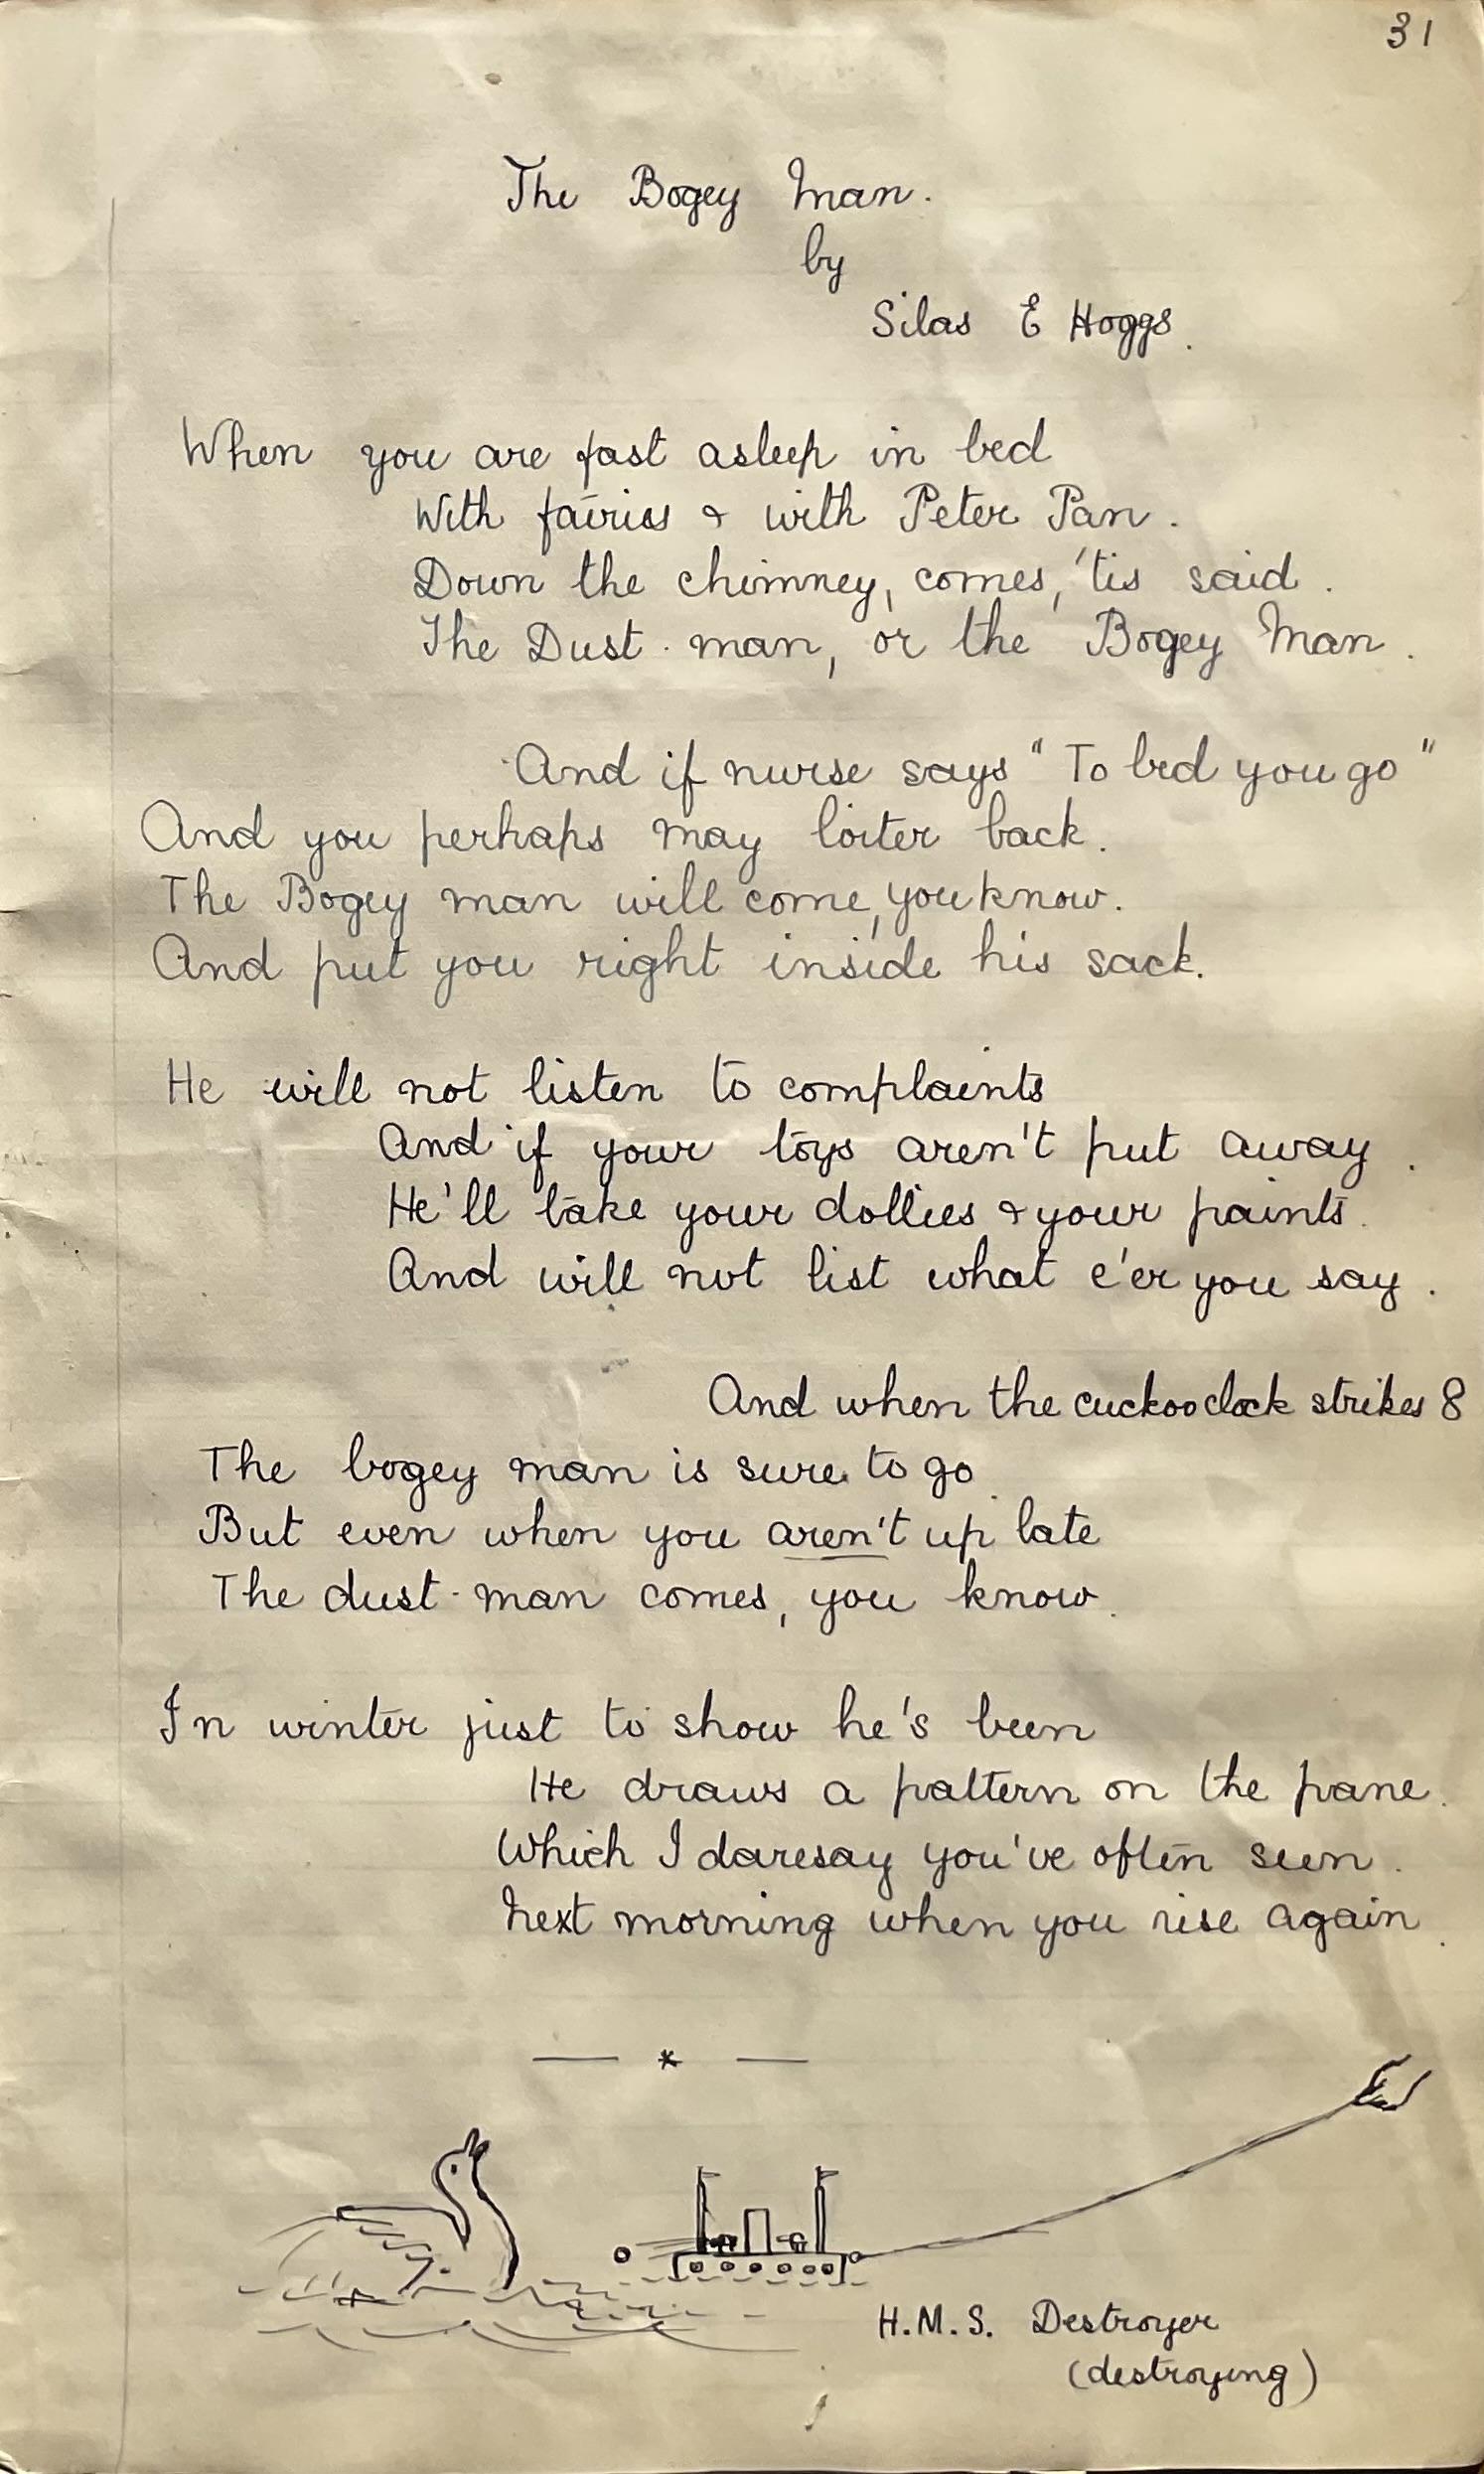 31
The Bogey Man.
by
Silas E Hoggs.
When you are fast asleep in bed
With fairies & with Peter Pan.
Down the chimney, comes, 'tis said.
The Dust-man, or the Bogey Man.
And if nurse says "To bed you go"
And you perhaps may loiter back.
The Bogey man will come, you know.
And put you right inside his sack.
He will not listen to complaints
And if your toys aren't put away.
He'll take your dollies & your paints.
And will not list what e'er you say.
And when the cuckoo clock strikes 8
The bogey man is sure to go.
But even when you aren't up late
The dust-man comes, you know.
In winter just to show he's been
He draws a pattern on the pane.
Which I daresay you've often seen.
Next morning when you rise again.
— * —
H.M.S. Destroyer
(destroying)